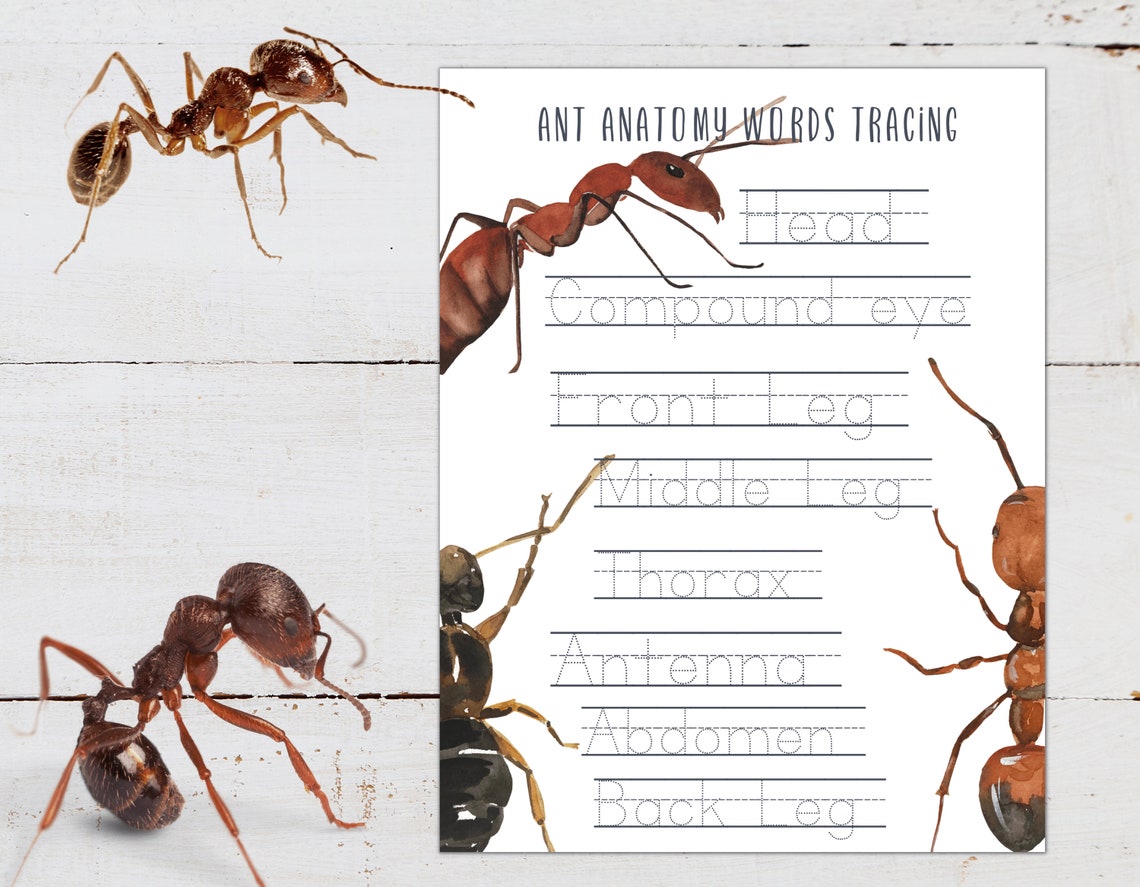 ANT ANATOMY WORDS TRACING
Head
Compound eye
Front Leg
Middle Leg
Thorax
Antenna
Abdomen
Back Leg